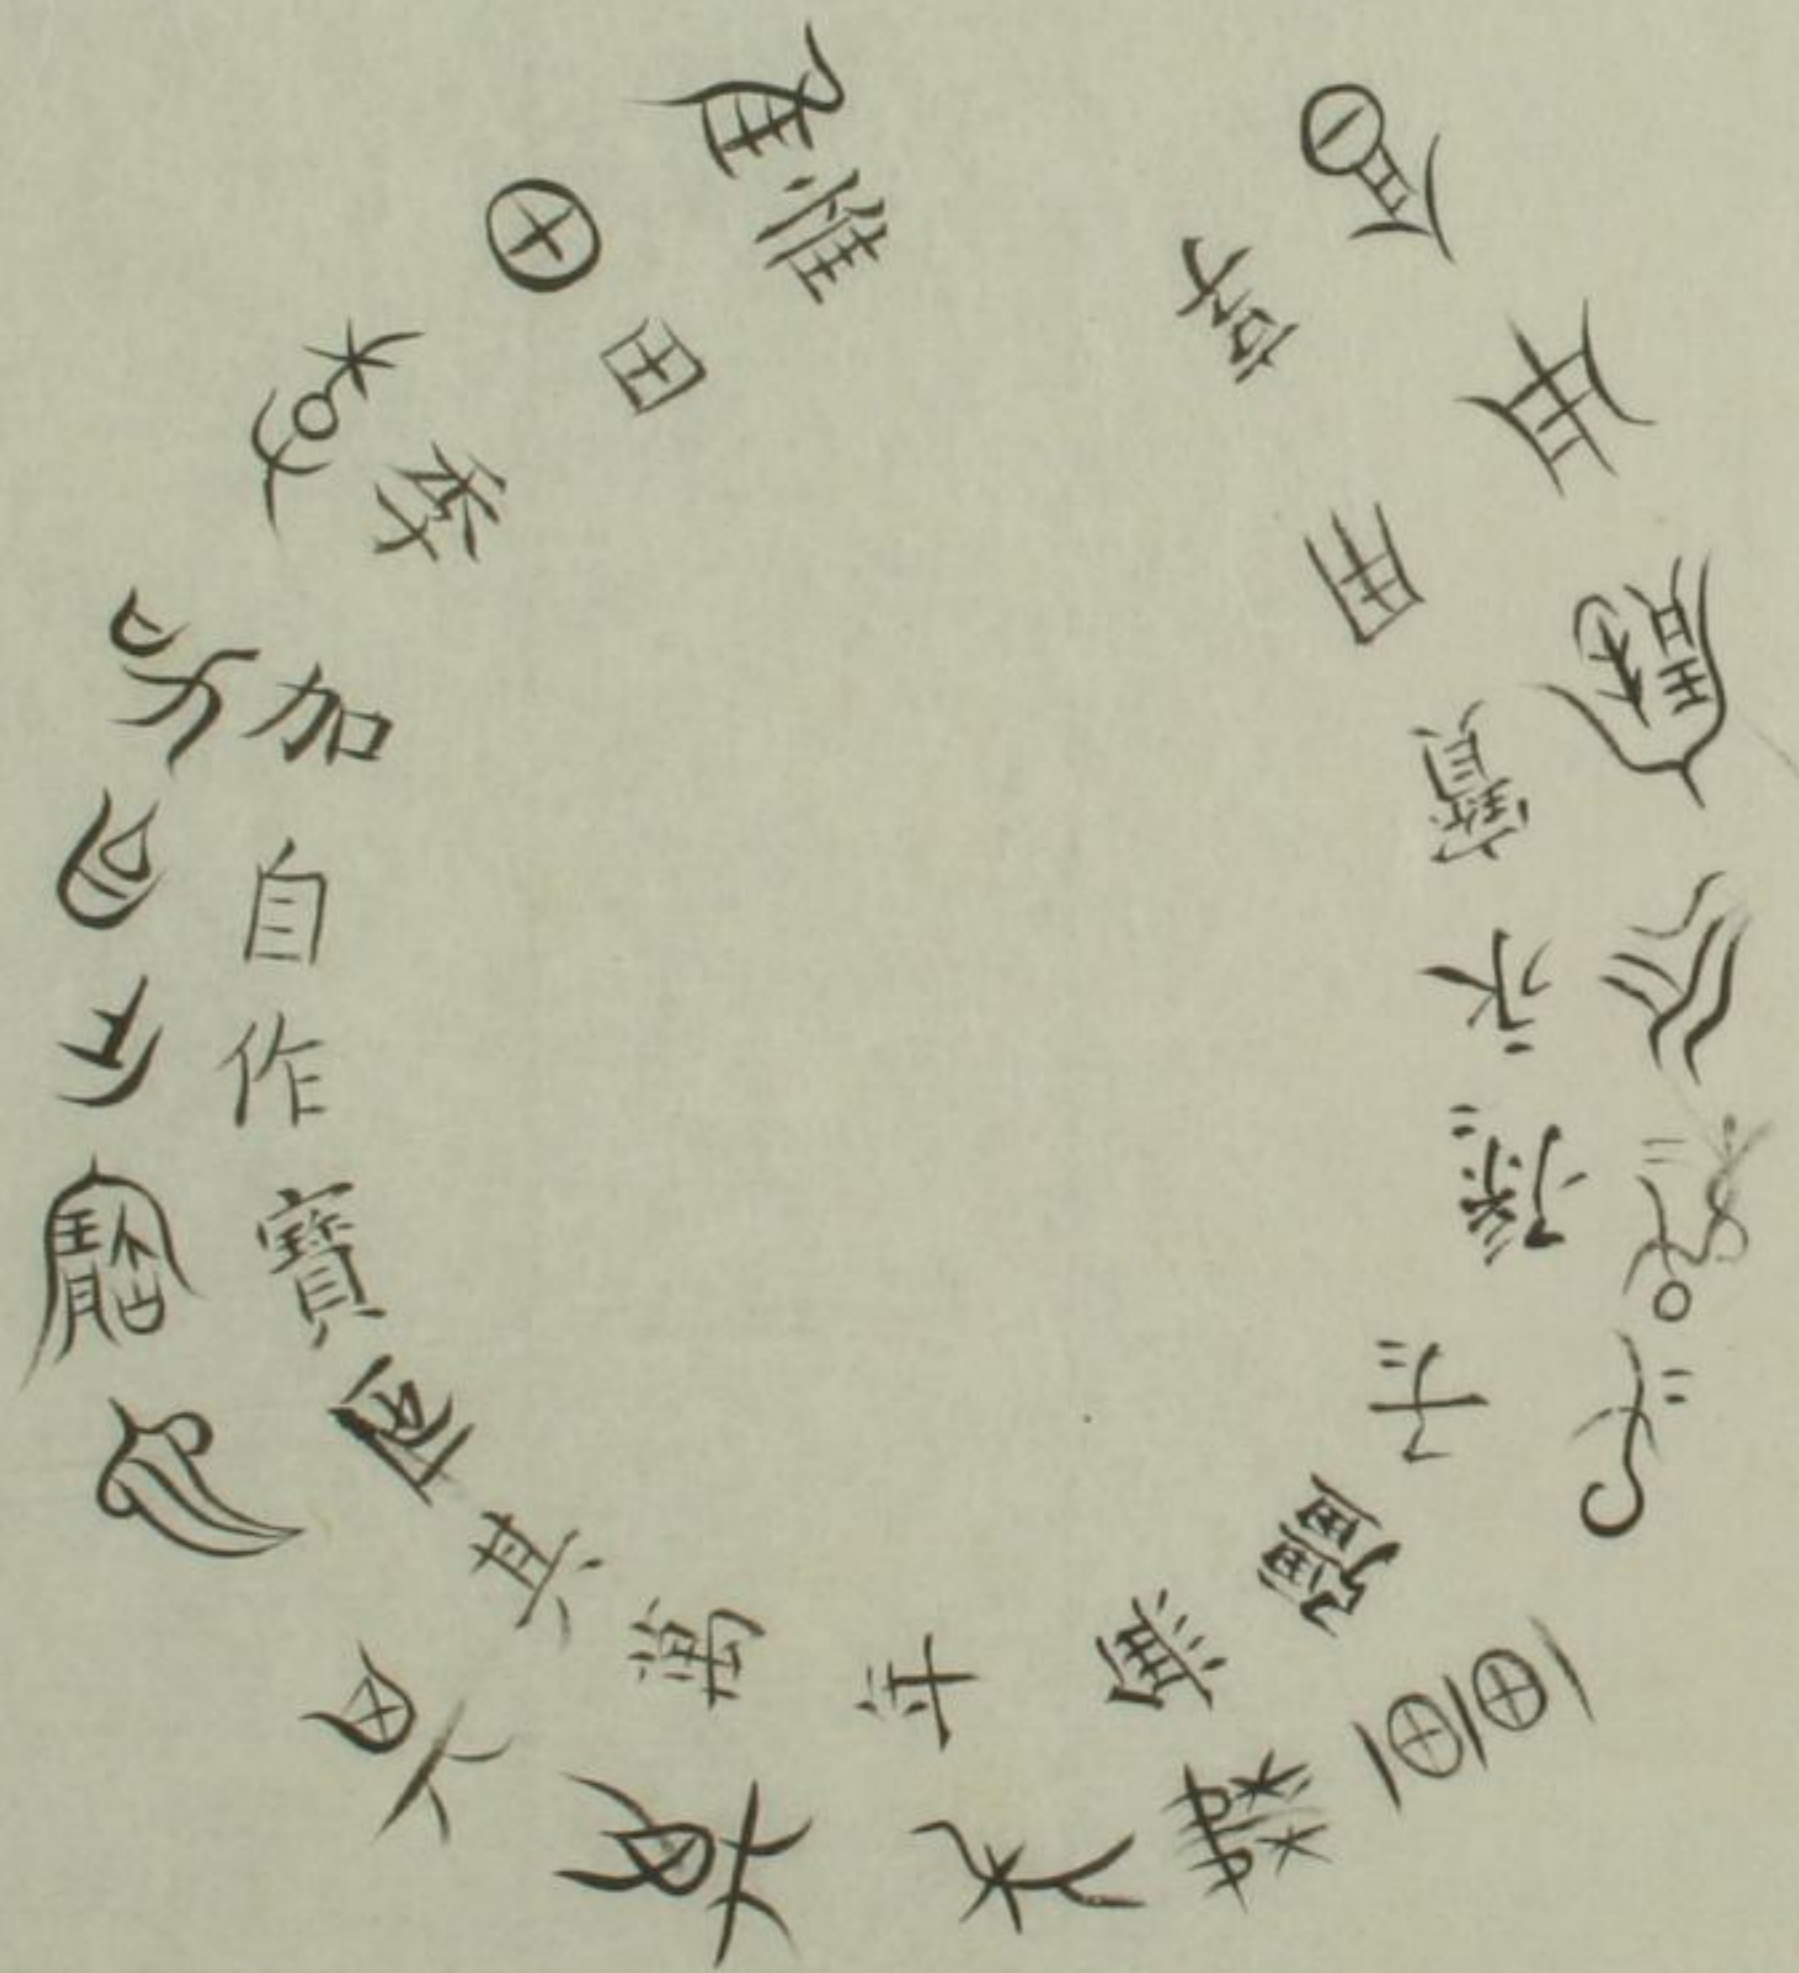 惟田季加自作寶匜其萬年無疆子=孫=永寶用享